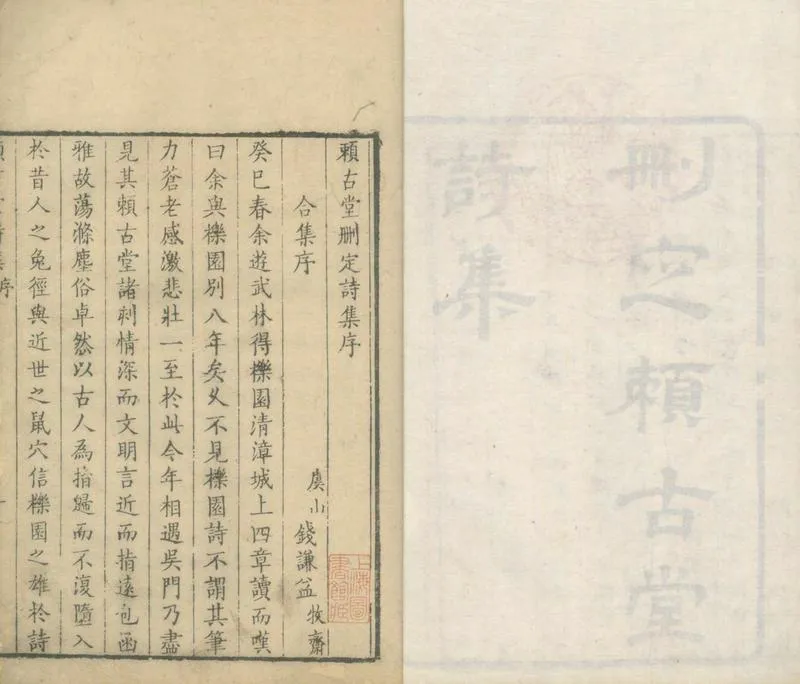 刪定頼古堂
詩集
頼古堂刪定詩集序
合集序
虞山錢謙益牧齋
癸巳春余遊武林得櫟園清漳城上四章讀而嘆
曰余與櫟園別八年矣久不見櫟園詩不謂其筆
力蒼老感激悲壯一至於此今年相遇吳門乃盡
見其頼古堂諸刻情深而文明言近而指遠包函
雅故蕩滌塵俗卓然以古人為指歸而不復墮入
於昔人之兔徑與近世之鼠穴信櫟園之雄於詩
序
上海圖書館藏